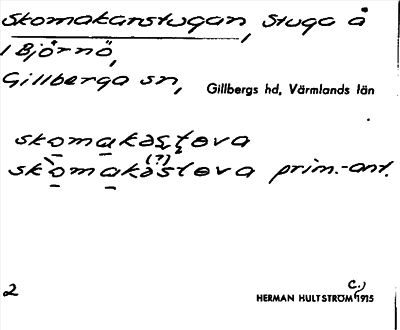 Skomakarstugan, stuga å
1 Björnö,
Gillberga sn,
Gillbergs hd, Värmlands län
skomakasteva
(?)
skomakasteva prim.-ant.
2
c.)
HERMAN HULTSTRÖM 1915